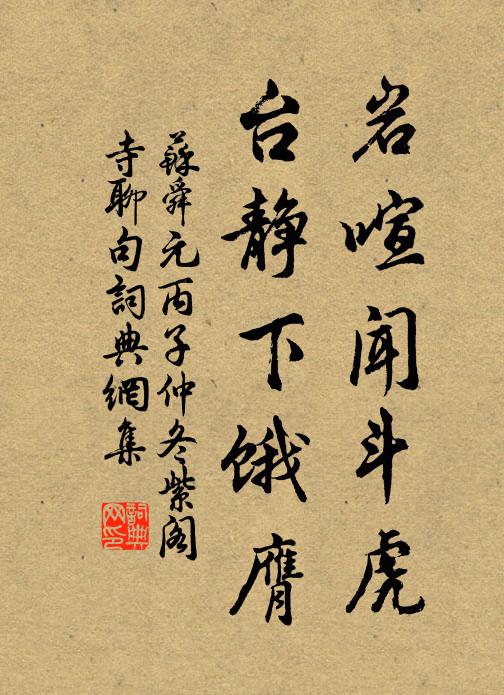 岩喧闻斗虎
台静下饿膺
蘇舜元丙子仲冬紫阁
寺聊句詞典網集
詞典
网印